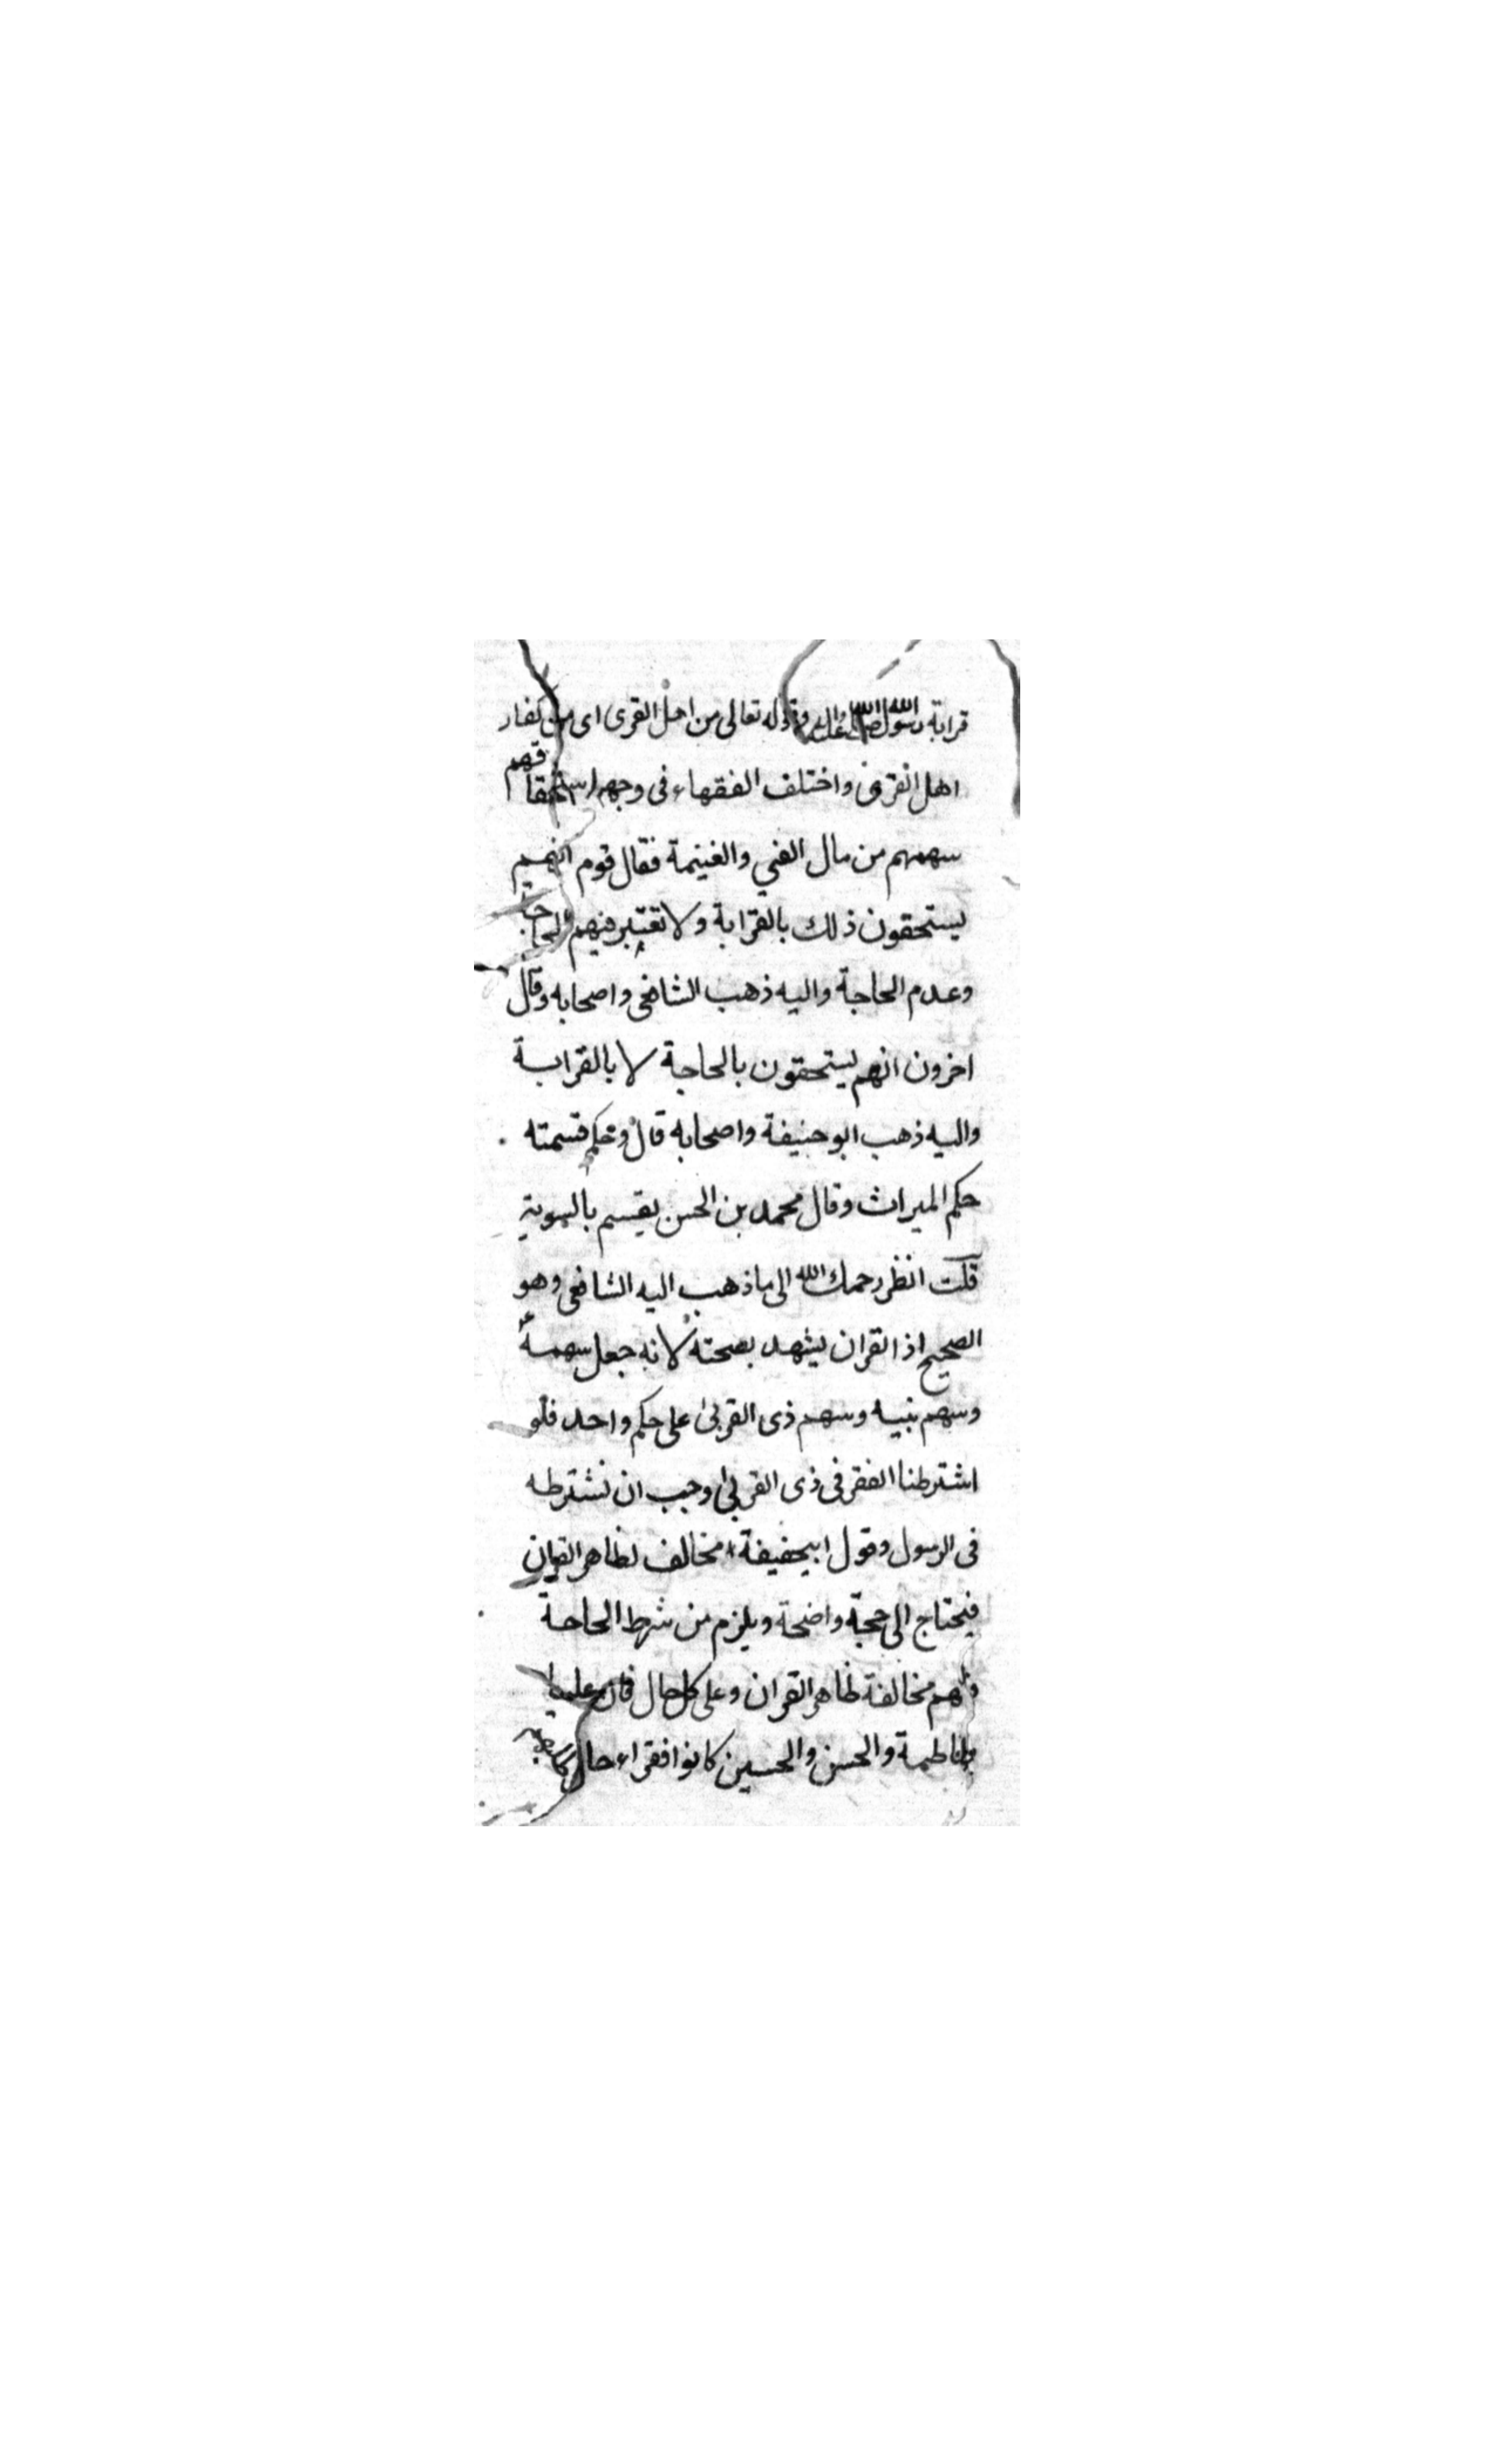 قرابة رسول الله صلى الله عليه واله وقوله تعالى من اهل القرى اى من كفار
اهل القرى واختلف الفقهاء فى وجه استحقاقهم
سهمهم من مال الفي والغنيمة فقال قوم انهم
يستحقون ذلك بالقرابة ولا تعتبر فيهم الحاجة
وعدم الحاجة واليه ذهب الشافعى واصحابه وقال
اخرون انهم يستحقون بالحاجة لا بالقرابة
واليه ذهب ابو حنيفة واصحابه قال وحكم قسمته
حكم الميراث وقال محمد بن الحسن يقسم بالسوية
قلت انظر رحمك الله الى ما ذهب اليه الشافعى وهو
الصحيح اذ القران يشهد بصحته لانه جعل سهمه
وسهم نبيه وسهم ذى القربى على حكم واحد فلو
اشترطنا الفقر فى ذى القربى وجب ان نشترطه
فى الرسول وقول ابيحنيفة مخالف لظاهر القران
فيحتاج الى حجة واضحة ويلزم من شرط الحاجة
مخالفة ظاهر القران وعلى كل حال فان عليا
وفاطمة والحسن والحسين كانوا فقراء حال